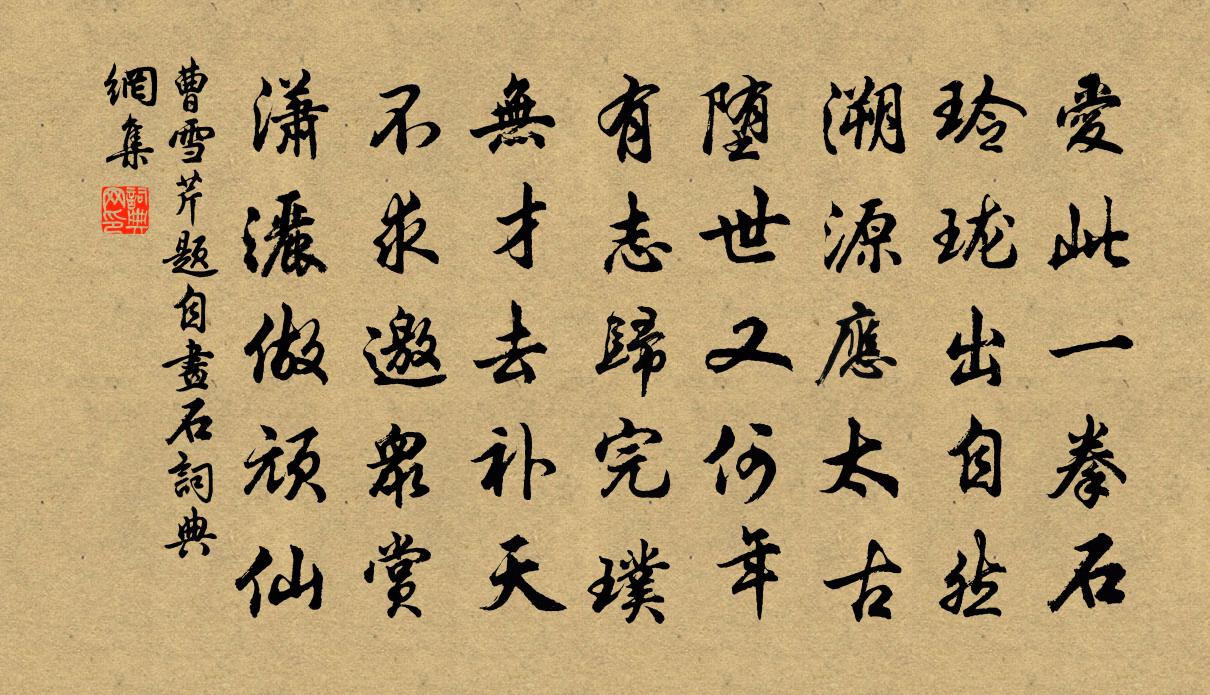 愛此一拳石
玲珑出自然
溯源應太古
堕世又何年
有志歸完璞
無才去补天
不求邀衆賞
瀟灑做頑仙
曹雪芹题自畫石詞典
網集
詞典
网印